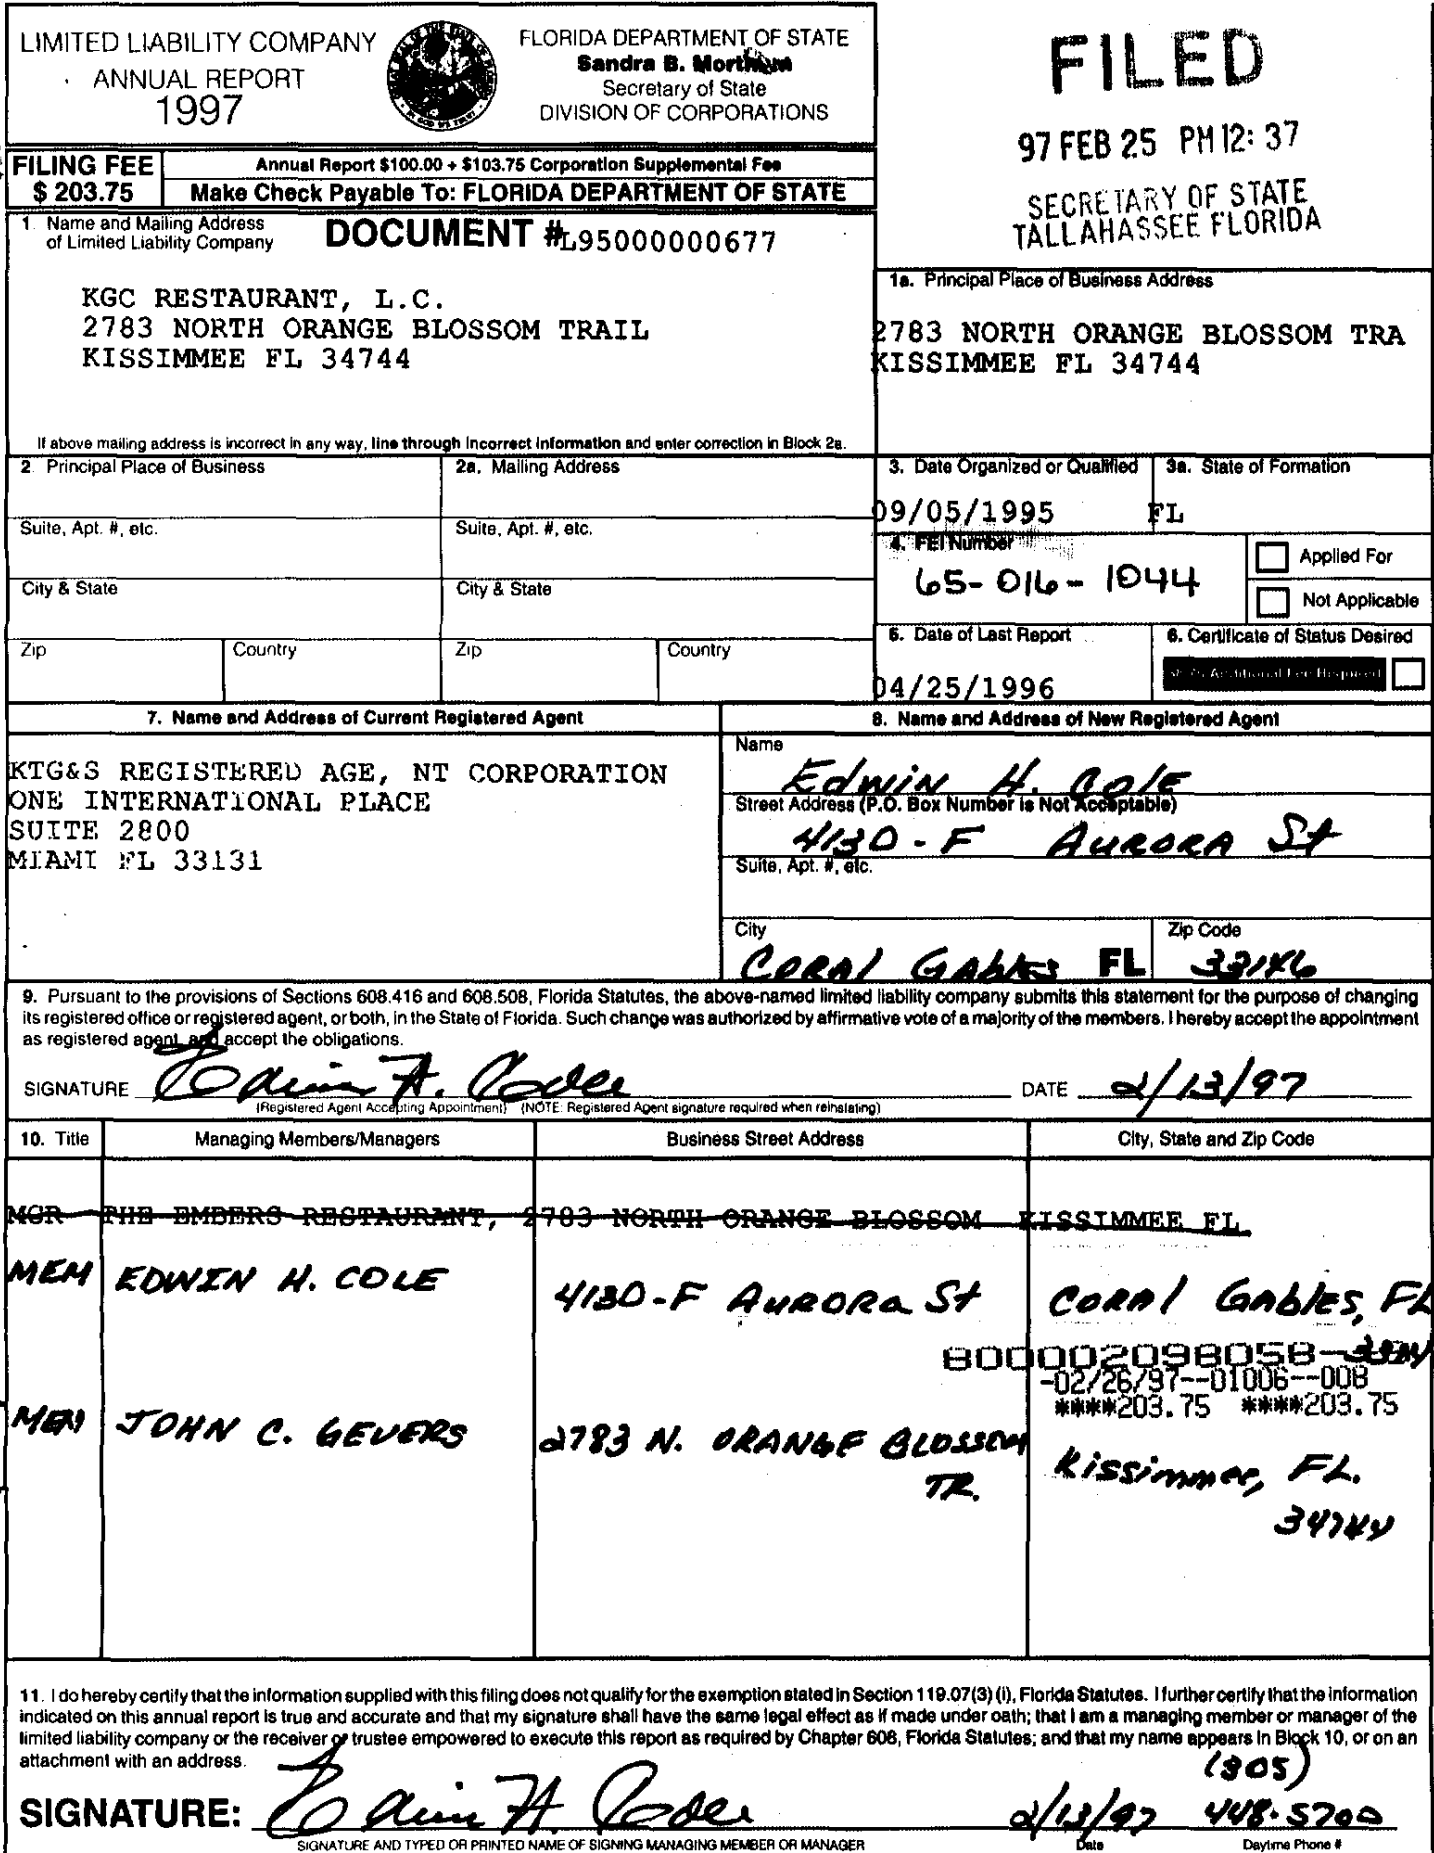 LIMITED LIABILITY COMPANY
ANNUAL REPORT
1997
FLORIDA DEPARTMENT OF STATE
Sandra B. Mortham
Secretary of State
DIVISION OF CORPORATIONS
FILED
97 FEB 25 PM 12: 37
SECRETARY OF STATE
TALLAHASSEE FLORIDA
FILING FEE
$ 203.75
Annual Report $100.00 + $103.75 Corporation Supplemental Fee
Make Check Payable To: FLORIDA DEPARTMENT OF STATE
1. Name and Mailing Address
of Limited Liability Company
DOCUMENT #L95000000677
KGC RESTAURANT, L.C.
2783 NORTH ORANGE BLOSSOM TRAIL
KISSIMMEE FL 34744
If above mailing address is incorrect in any way, line through incorrect information and enter correction in Block 2a.
1a. Principal Place of Business Address
2783 NORTH ORANGE BLOSSOM TRA
KISSIMMEE FL 34744
2. Principal Place of Business
2a. Mailing Address
Suite, Apt. #, etc.
Suite, Apt. #, etc.
City & State
City & State
Zip
Country
Zip
Country
3. Date Organized or Qualified
09/05/1995
3a. State of Formation
FL
4. FEI Number
65-016-1044
Applied For
Not Applicable
5. Date of Last Report
04/25/1996
6. Certificate of Status Desired
Additional Fee Required
7. Name and Address of Current Registered Agent
KTG&S REGISTERED AGE, NT CORPORATION
ONE INTERNATIONAL PLACE
SUITE 2800
MIAMI FL 33131
8. Name and Address of New Registered Agent
Name
Edwin H. Cole
Street Address (P.O. Box Number is Not Acceptable)
4130-F AURORA St
Suite, Apt. #, etc.
City
CORAL GABLES FL
Zip Code
33146
9. Pursuant to the provisions of Sections 608.416 and 608.508, Florida Statutes, the above-named limited liability company submits this statement for the purpose of changing
its registered office or registered agent, or both, in the State of Florida. Such change was authorized by affirmative vote of a majority of the members. I hereby accept the appointment
as registered agent, and accept the obligations.
SIGNATURE Edwin H. Cole DATE 2/13/97
(Registered Agent Accepting Appointment) (NOTE: Registered Agent signature required when reinstating)
10. Title
Managing Members/Managers
Business Street Address
City, State and Zip Code
MGR THE EMBERS RESTAURANT, 2783 NORTH ORANGE BLOSSOM KISSIMMEE FL
MEM EDWIN H. COLE 4130-F AURORA St CORAL GABLES, FL
800002098058--
-02/26/97--01006--008
****203.75 ****203.75
MEM JOHN C. GEVERS 2783 N. ORANGE BLOSSOM
TR.
Kissimmee, FL.
34744
11. I do hereby certify that the information supplied with this filing does not qualify for the exemption stated in Section 119.07(3) (i), Florida Statutes. I further certify that the information
indicated on this annual report is true and accurate and that my signature shall have the same legal effect as if made under oath; that I am a managing member or manager of the
limited liability company or the receiver or trustee empowered to execute this report as required by Chapter 608, Florida Statutes; and that my name appears in Block 10, or on an
attachment with an address.
(305)
SIGNATURE: Edwin H. Cole 2/13/97 448-5700
SIGNATURE AND TYPED OR PRINTED NAME OF SIGNING MANAGING MEMBER OR MANAGER
Date
Daytime Phone #